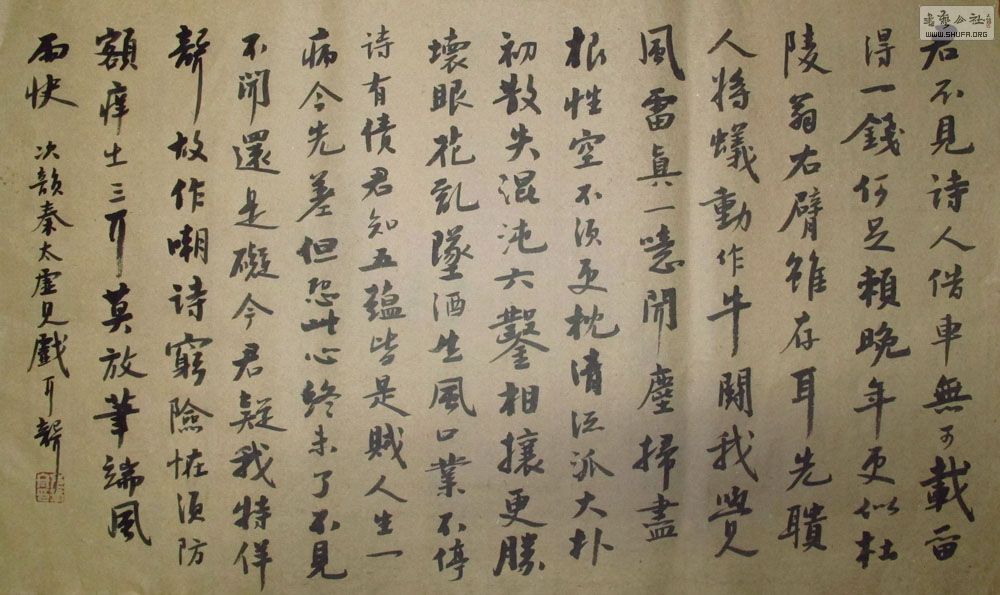 君不見詩人借車無可載留
得一錢何足賴晚年更似杜
陵翁右臂雖存耳先聵
人將蟻動作牛鬪我覺
風雷眞一噫聞塵掃盡
根性空不須更枕清流派大朴
初散失混沌六鑿相攘更勝
壞眼花乱墜酒生風口業不停
詩有債君知五蘊皆是賊人生一
病今先差但恐此心終未了不見
不聞還是礙今君疑我特佯
聾故作嘲詩窮險恠須防
額痒出三耳莫放筆端風
雨快 次韻秦太虛見戲耳聾
书艺公社
WWW.SHUFA.ORG